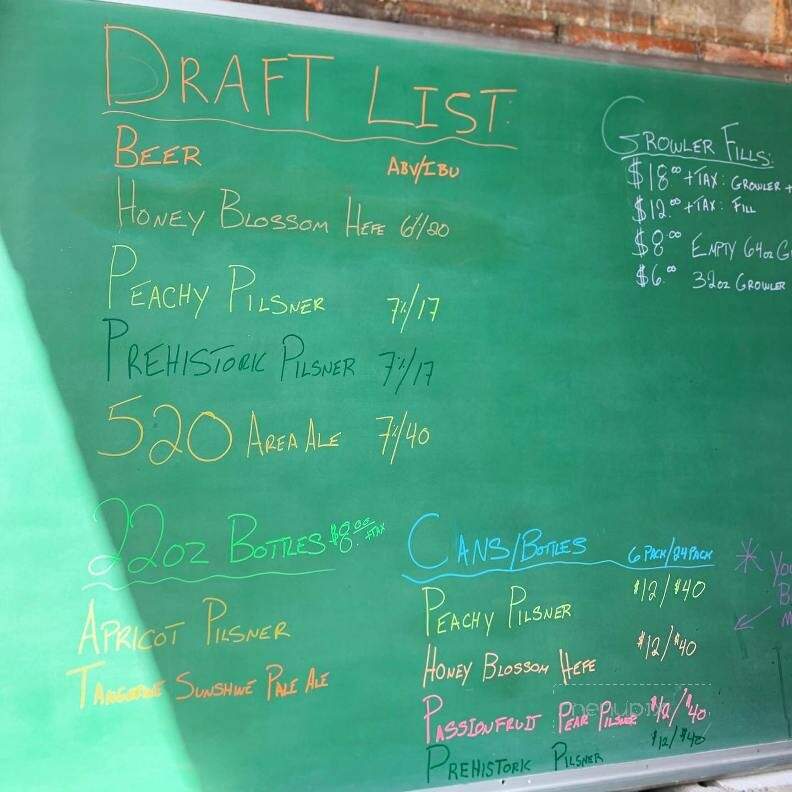 DRAFT LIST:
BEER ABV/IBU
HONEY BLOSSOM HEFE 6%/20
PEACHY PILSNER 7%/17
PREHISTORIC PILSNER 7%/17
520 AREA ALE 7%/40
GROWLER FILLS:
$18.00 +TAX: GROWLER +
$12.00 +TAX: FILL
$8.00 EMPTY 64oz G
$6.00 32oz GROWLER
22oz BOTTLES $8.00 +TAX
APRICOT PILSNER
TANGERINE SUNSHINE PALE ALE
CANS/BOTTLES 6 PACK/24 PACK
PEACHY PILSNER $12/$40
HONEY BLOSSOM HEFE $12/$40
PASSIONFRUIT PEAR PILSNER $12/$40
PREHISTORIC PILSNER $12/$40